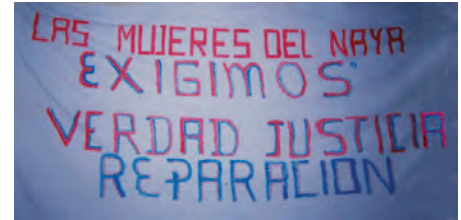 LAS MUJERES DEL NAYA
EXIGIMOS
VERDAD JUSTICIA
REPARACION